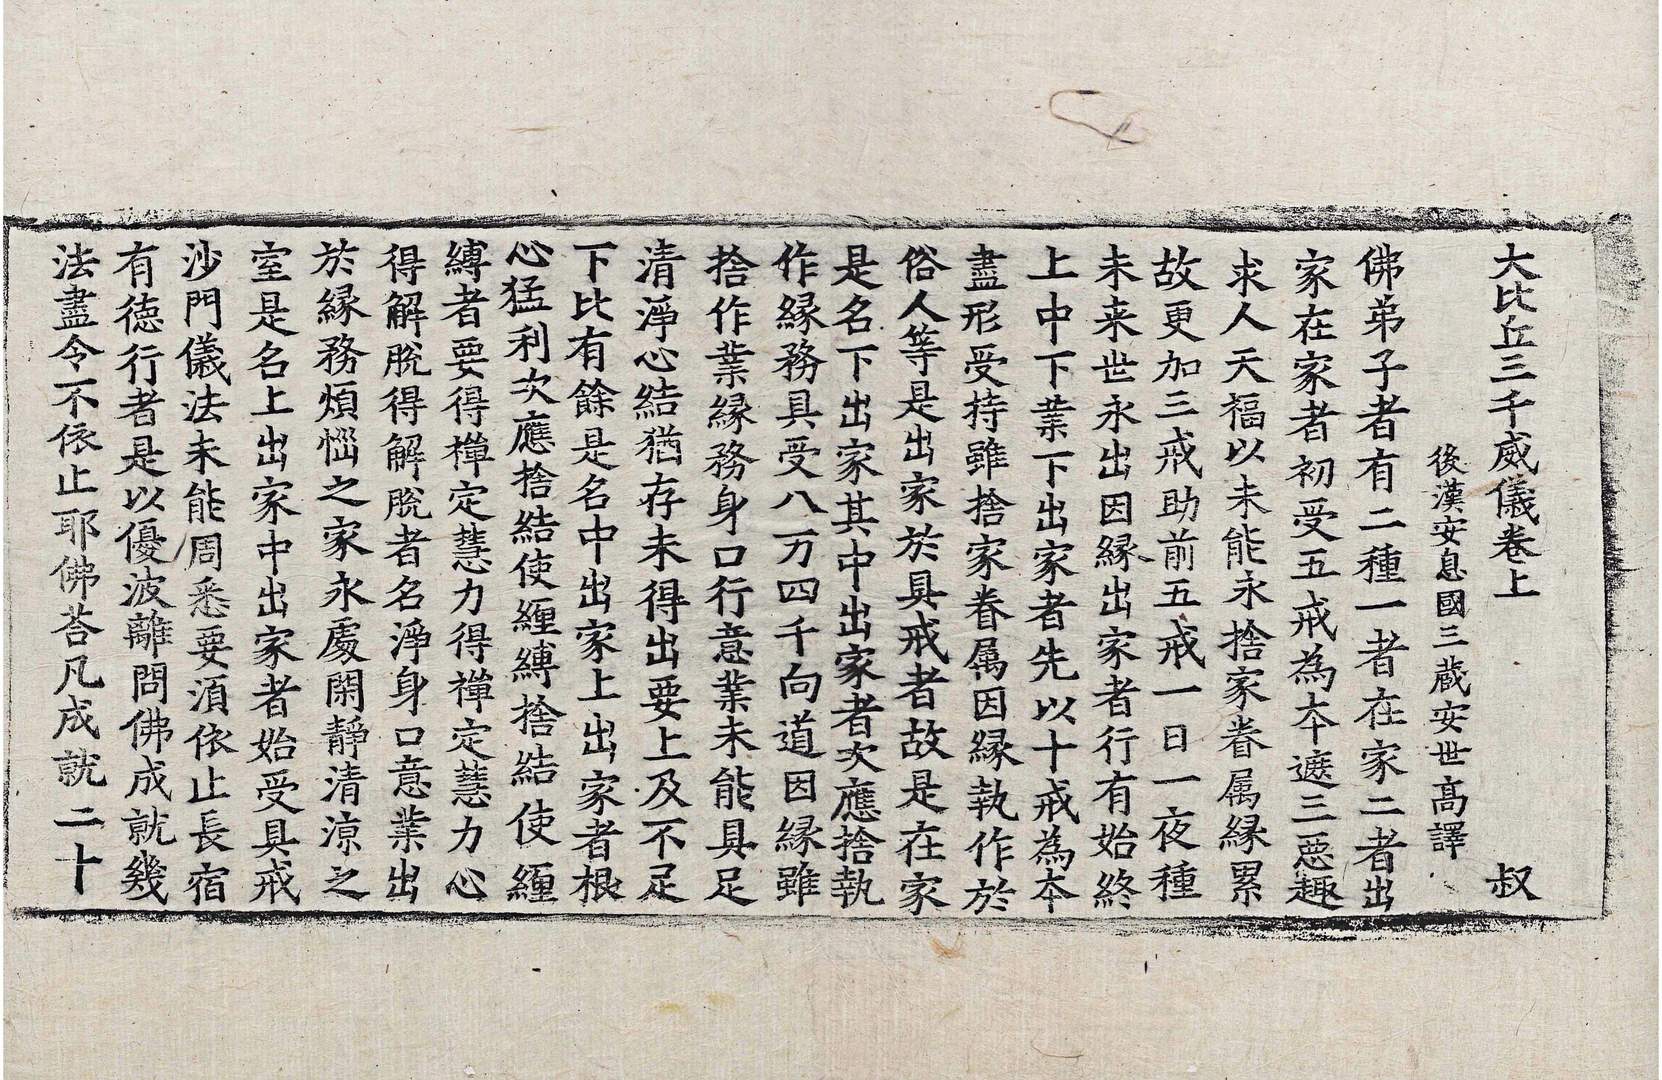 大比丘三千威儀卷上　叔
後漢安息國三蔵安世髙譯
佛弟子者有二種一者在家二者出
家在家者初受五戒為夲遮三惡趣
求人天福以未能永捨家眷属縁累
故更加三戒助前五戒一日一夜種
未来世永出因縁出家者行有始終
上中下業下出家者先以十戒為夲
盡形受持雖捨家眷属因縁執作於
俗人等是出家於具戒者故是在家
是名下出家其中出家者次應捨執
作縁務具受八万四千向道因縁雖
捨作業縁務身口行意業未能具足
清淨心結猶存未得出要上及不足
下比有餘是名中出家上出家者根
心猛利次應捨結使纏縛捨結使纏
縛者要得禪定慧力得禪定慧力心
得解脫得解脫者名淨身口意業出
於縁務煩惱之家永處閑靜清涼之
室是名上出家中出家者始受具戒
沙門儀法未能周悉要湏依止長宿
有德行者是以優波離問佛成就幾
法盡令不依止耶佛荅凡成就二十